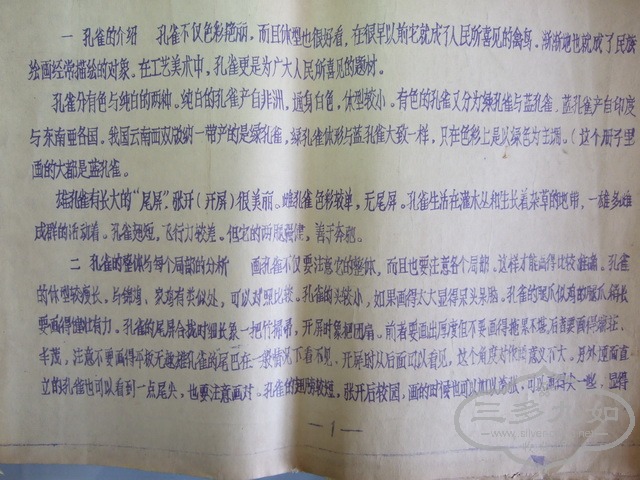 一 孔雀的介绍 孔雀不仅色彩艳丽。而且体型也很好看，在很早以前它就成了人民所喜见的禽鸟。渐渐地也就成了民族
绘画经常描绘的对象。在工艺美术中，孔雀更是为广大人民所喜见的题材。
孔雀分有色与纯白的两种。纯白的孔雀产自非洲，通身白色，体型较小。有色的孔雀又分为绿孔雀与蓝孔雀，蓝孔雀产自印度
与东南亚各国，我国云南西双版纳一带产的是绿孔雀，绿孔雀体形与蓝孔雀大致一样，只在色彩上是以绿色为主调。（这个册子里
画的大都是蓝孔雀。
雄孔雀有长大的“尾屏”，张开（开屏）很美丽。雌孔雀色彩较单，无尾屏。孔雀生活在灌木丛和生长着杂草的地带，一雄多雌
成群的活动着。孔雀翅短，飞行力较差。但它的两腿强健，善于奔驰。
二 孔雀的整体与每个局部的分析 画孔雀不仅要注意它的整体，而且也要注意各个局部。这样才能画得比较准确。孔雀
的体型较瘦长。与锦鸡、家鸡有类似处，可以对照比较。孔雀的头较小，如果画得太大显得呆头呆脑。孔雀的腿爪似鸡的腿爪稍长
要画得健壮有力。孔雀的尾屏合拢时细长象一把竹扫帚，开屏时象把团扇。前者要画出厚度但不要画得拖泥不振后者要画得
丰茂，注意不要画得平板无 孔雀的尾巴在一般情况下看不见，开屏时从后面可以看见，这个角度对 意义不大。另外迎面直
立的孔雀也可以看到一点尾尖，也要注意画对。孔雀的翅膀较短，张开后较圆，画的时候也可以加以夸张，可以画得大一些，显得
— 1 —
三多九如
www.silversand.net